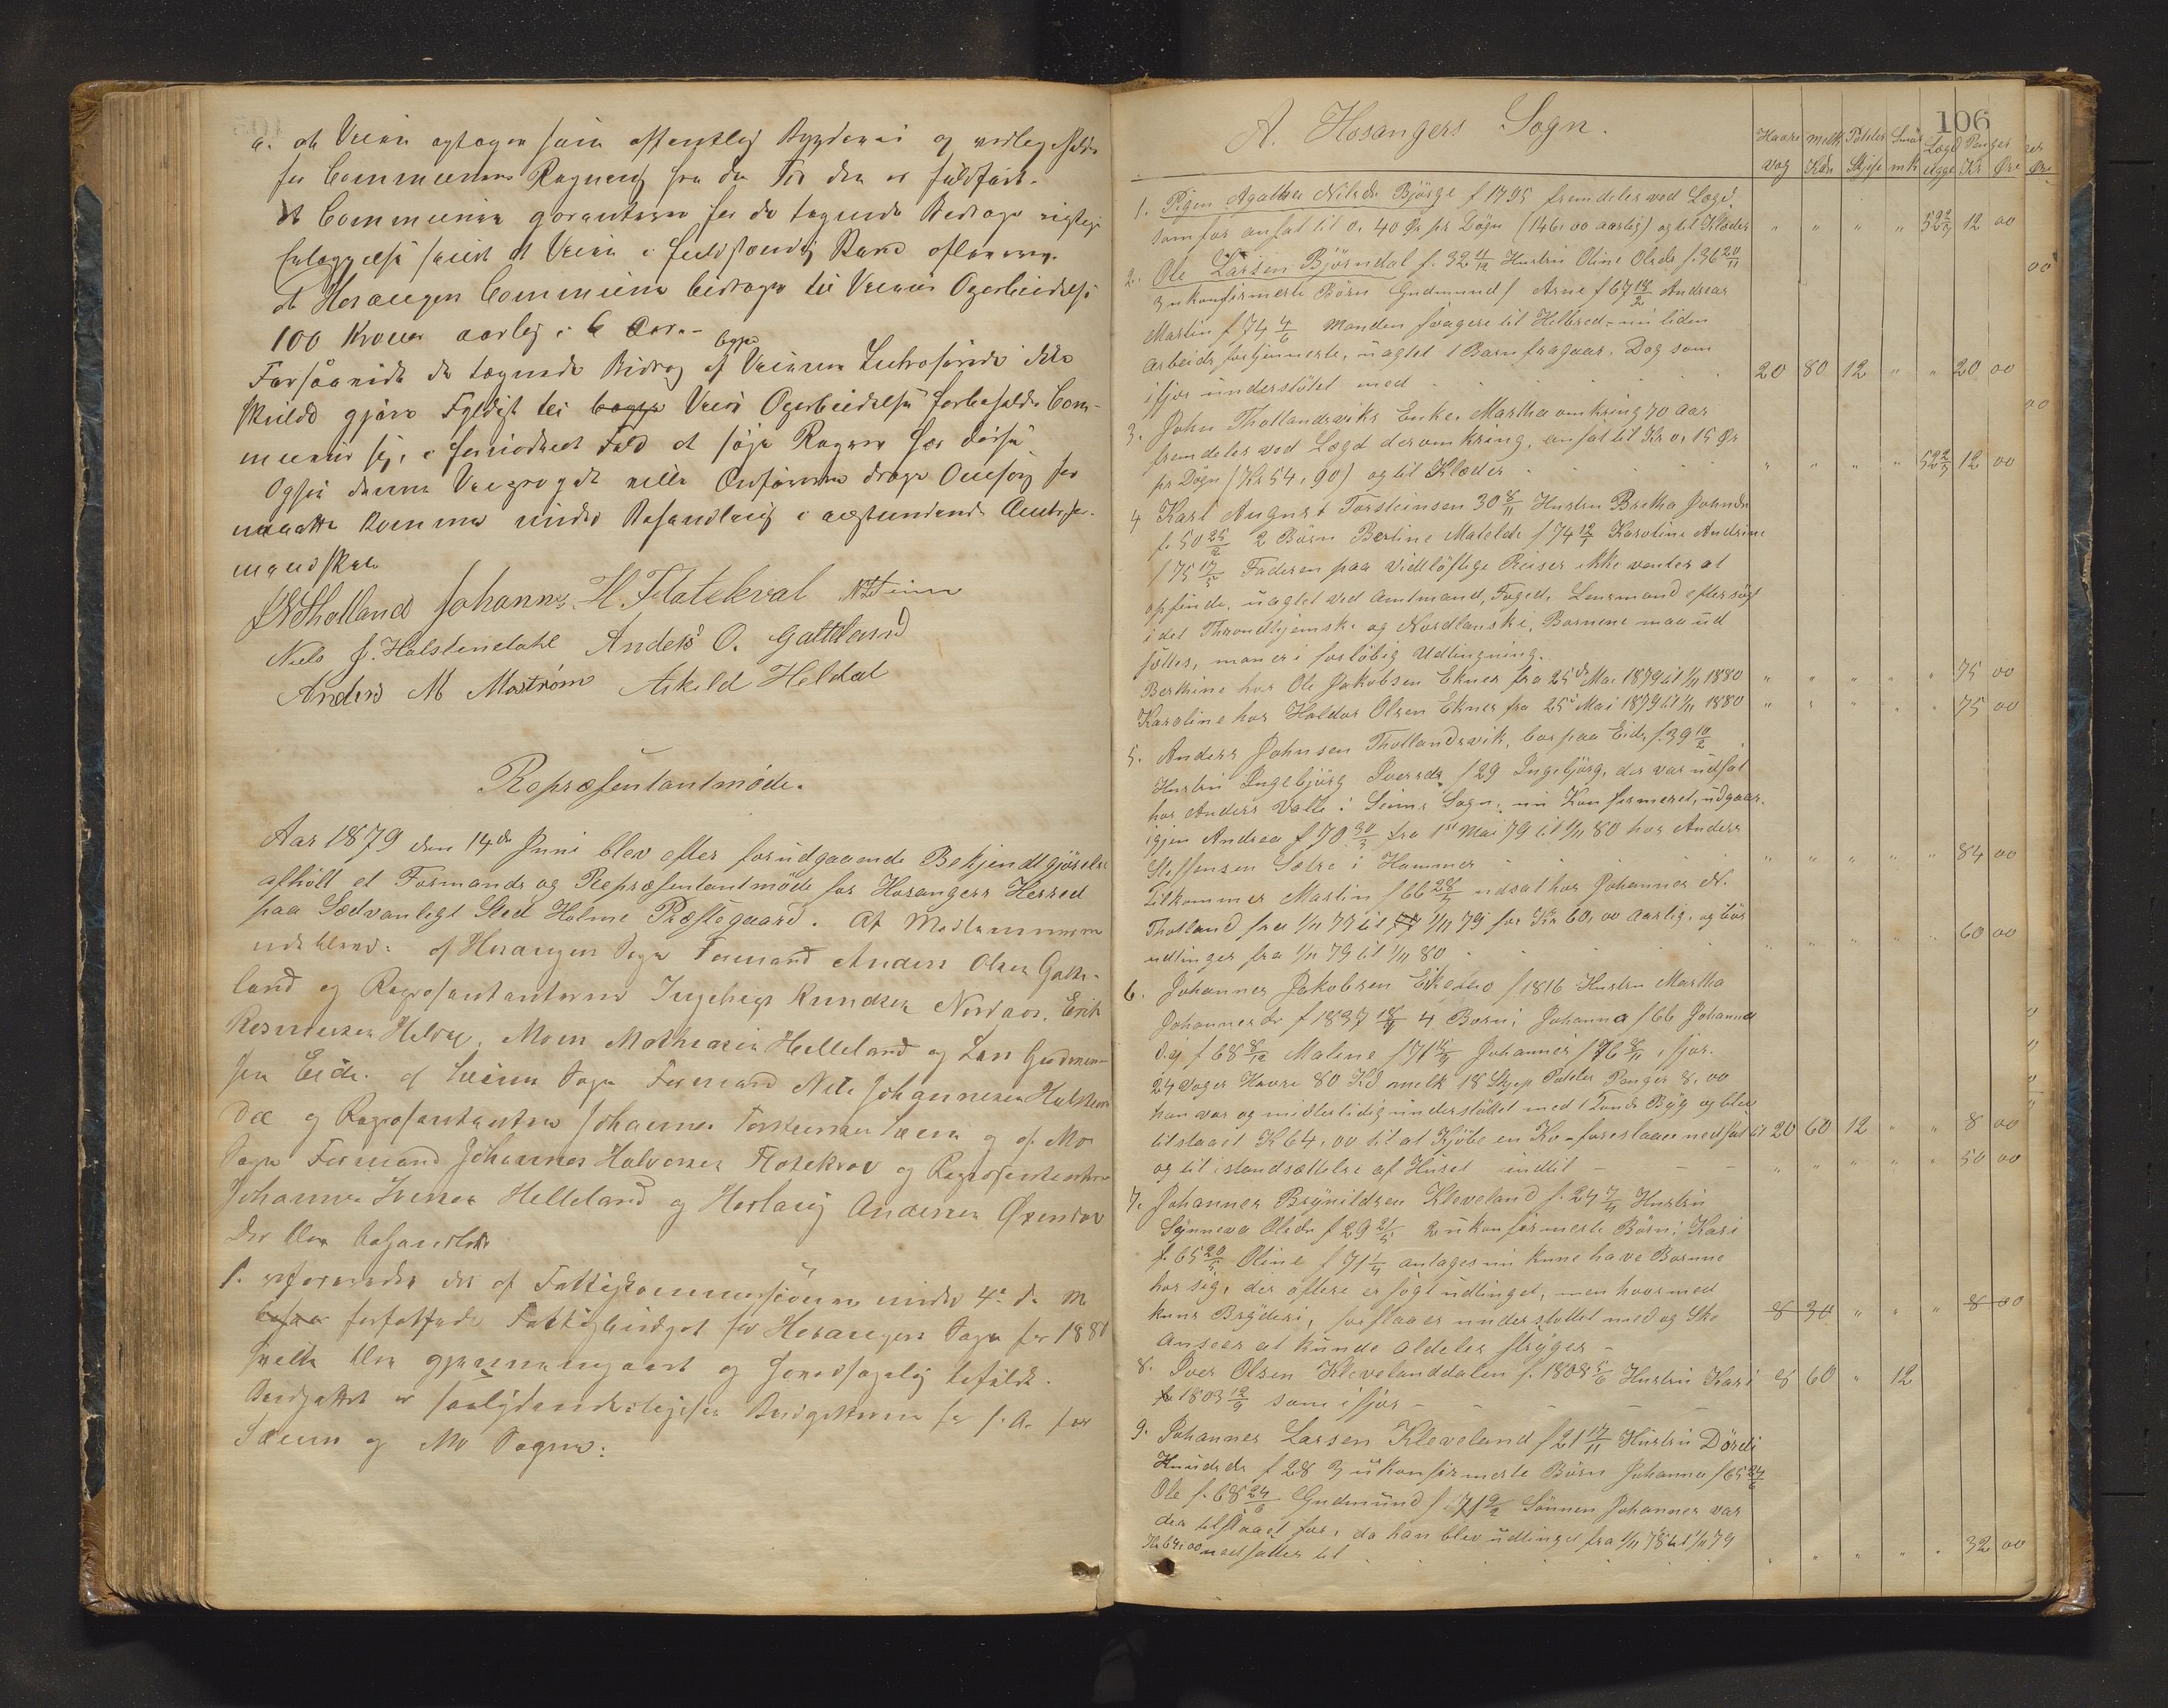 a. at Veien optages som offentlig Bygdevei og vedligeholdes
for Communens Regning fra den Tid den er fuldført.
at Communen garanterer for de tegnede Bidrags rigtige
Erlæggelse samt at Veien i fuldstændig Stand afleveres.
at Hosanger Commune bidrager til Veiens Oparbeidelse
100 Kroner aarlig i 6 Aar. -
Forsaavidt de tegnede Bidrag af Veiens Interesserede ikke
skulde gjøre Fyldest til Veiens Oparbeidelse forbeholder Com-
munen sig, i fornødent Fald at søge
Ogsaa denne
maatte komme under Behandling i Amtsfor-
mandskab
N Tholland Johannes H. Flatekval
Niels J. Halstendahl Anders O. Gatteland
Anders M Mostrøm Askild Heldal
Repræsentantmøde.
Aar 1879 den 14de Juni blev efter forudgaaende Bekjendtgjørelse
afholt et Formands og Repræsentantmøde for Hosangers Herred
paa Sædvanligt Sted Holme Præstegaard. Af Medlemmerne
udeblev: af Hosanger Sogn Formand Anders Olsen Gatte-
land og Repræsentanterne Ingebrigt Knudsen Nordaas, Erik
Rasmussen Mons Mathiasen Helleland og Lars Gudmun-
sen Eide. af Seim Sogn Formand Nils Johannesen Halsten-
dal og Repræsentanten Johannes Torkelsen Seim og af Mo
Sogn Formand Johannes Halvorsen Flatekval og Repræsentanterne
Johannes Iversen Helleland og Herlaug Andersen
Der blev behandlet
1. det af Fattigkommissionen under 4de d. M.
forfattede Fattigbudget for Hosanger Sogn for 1880
hvilket blev gjennemgaaet og bifaldt.
Budgettet er saalydende ligesom Budgetterne for s. A. for
Seim og Mo Sogne:
106
A. Hosangers Sogn.
Havre Melk Poteter Smør Lægd Penger
vog Kdr Skjep mk Kr Øre
1. Pigen Agatha Nilsdr Bjørge f 1795 fremdeles ved Lægd,
som før ansat til 0,40 Ør pr Døgn (146,00 aarlig) og til Klæder " " " " 52 2/7 12 00
2. Ole Larsen Bjørndal f. 32 Hustru Oline Olsdr f. 36 20/11
3 ukonfirmerte Børn Gudmund f Arne f 67 18/2 Andreas
Martin f 74 4/6 Manden svagere til Helbred - nu liden
arbeids fortjenneste, uagtet 1 Barn fragaar. Dog som
ifjor understøtet med 20 80 12 " " 20 00
3. John Thollandsviks Enke Martha omkring 70 Aar
fremdeles ved Lægd deromkring, ansat til Kr 0,15 Ør
pr Døgn (Kr 54,90) og til Klæder " " " " 52 2/7 12 00
4 Karl August Torsteinsen 30 8/11 Hustru Britha Johnsdr
f. 50 25/2 2 Børn Bertine Matelde f 74 Karoline Andrine
f 75 17/5 Faderen paa Vidtløftige Reiser ikke ventes at
opfinde, uagtet ved Amtmand, Foged, Lensmand eftersøgt
i det Throndhjemske og Nordlanske, Bornene maa ud
sættes, man er i forløbig Udtingning.
Berthine hos Ole Jakobsen Eknes fra 25de Mai 1879 til 1/11 1880 " " " " " 75 00
Karoline hos Haldor Olsen Eknes fra 25 Mai 1879 til 1/11 1880 " " " " " 75 00
5. Anders Johnsen Thollandsvik, bor paa Eide f. 39 10/2
Hustru Ingebjørg Iversdr f 29 Ingebjørg, der var udsat
hos Anders Valle i Seims Sogn, nu Konfirmeret, udgaar,
igjen Andrea f 70 30/3 fra 1ste Mai 79 til 1/11 80 hos Anders
Steffensen Sætre i Hammer " " " " " 84 00
Tilkommer Martin f 66 udsat hos Johannes N.
Tholland fra 1/11 77 til 1/11 79 for Kr 60,00 Aarlig, og bør
udtinges fra 1/11 79 til 1/11 80 " " " " " 60 00
6. Johannes Jakobsen f 1816 Hustru Martha
Johannesdr f 1837 4 Born: Johanna f 66 Johanna
d.y f 68 Maline f 71 Johannes f 76 ifjor.
24 voger Havre 80 Kd melk 18 Skjep Poteter Penger 8,00
han var og midlertidig understøttet med 1 Tønde Byg og blev
tilstaaet K 64,00 til at Kjøbe en Ko - foreslaaes nedsat til 20 60 12 " " 8 00
og til istandsættelse af Huset indtil - " " " " " 50 00
7. Johannes Brynildsen Kleveland f. 24 Hustru
Synneva Olsdr f 29 21/5 2 ukonfirmerte Børn: Kari
f. 65 Oline f 71 antages nu kune have Bornene
hos sig, der oftere er søgt udtinget, men hvormed
kuns Bryderi, forslaaes understøttet med og Sko 8 30 " " " 8 00
Anseer at kunde aldeles stryges -
8. Iver Olsen Klevelanddalen f. 1808 Hustru Kari 8 60 " 12
f 1803 12/9 som ifjor -
9. Johannes Larsen Kleveland f 21 17/11 Hustru Dordi
Knudsdr f 28 3 ukonfirmerte Børn Johannes f 65
Ole f. 68 24/6 Gudmund f. 71 9/2 Sønnen Johannes var
der tilstaaet for, da han blev udtinget fra 1/11 78 til 1/11 79
Kr 64,00 nedsættes til " " " " " 32 00